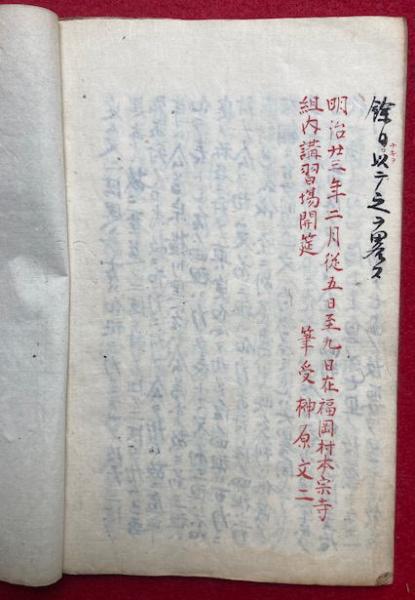 餘日以テ之ヲ畧ス
明治廿三年二月從五日至九日在福岡村本宗寺
組内講習場開筵　筆受 榊原文二